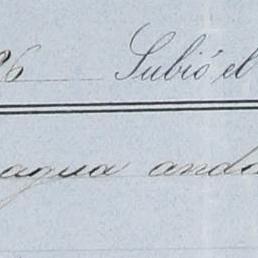 96 Subió el
agua anda